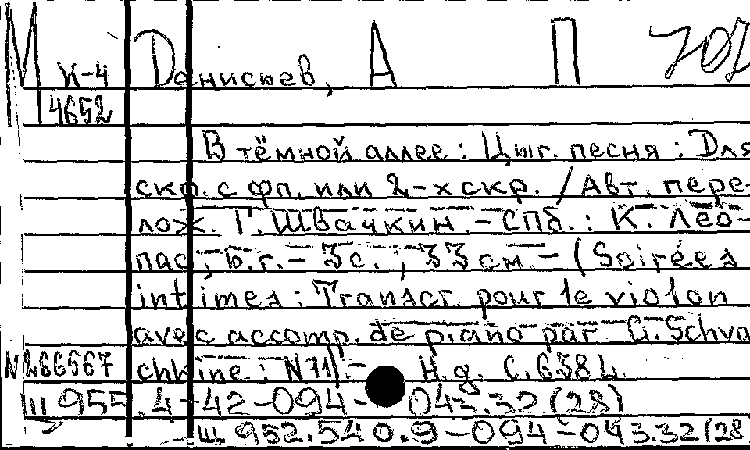 М К-4 Донисьев, А П 707
4652
В тёмной аллее: Цыг. песня: Для
скр. с фп. или 2-х скр. / Авт. пере-
лож. Г. Швачкин. - СПб.: К. Лео-
пас, б.г. - 3 с.; 33 см - (Soirées
intimes: Transcr. pour le violon
avec accomp. de piano par G. Schva
N 266567 chkine: N71). - Н.д. С.6384.
Ш 955.4-42-094- 043.32(28)
Ш 952.540.9-094-043.32(28